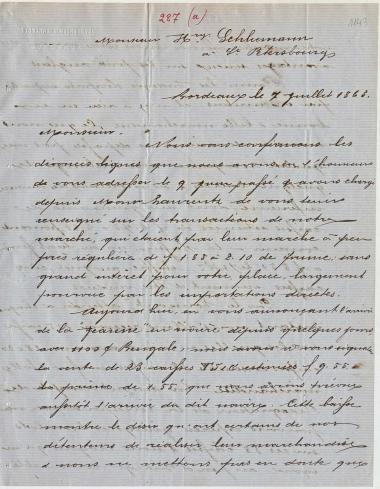 287 (a)
Monsieur Hry Schliemann
à St Petersbourg
Bordeaux le 7 juillet 1868.
Monsieur.
Nous vous confirmons les
diverses lignes que nous avons eu l'honneur
de vous adresser le 9 passé & avons chargé
depuis Monsr de vous tenir
renseigné sur les transactions de notre
marché, qui étaient par leur marche à peu
près régulière de f 1.85 à 2.10 de prime, sans
grand intérêt pour votre place, largement
pourvue par les importations directes.
Aujourd'hui, en vous annonçant l'arrivée
de la navire depuis quelques jours
avec Bengale, nous avons à vous signaler
la vente de 23 caisses estimées f. 9.55
de prime de 1.55, que nous avons
aussitôt l'arrivée du dit navire. Cette baisse
montre le désir qu'ont certains de nos
détenteurs de réaliser leur marchandise
& nous ne mettons pas en doute que